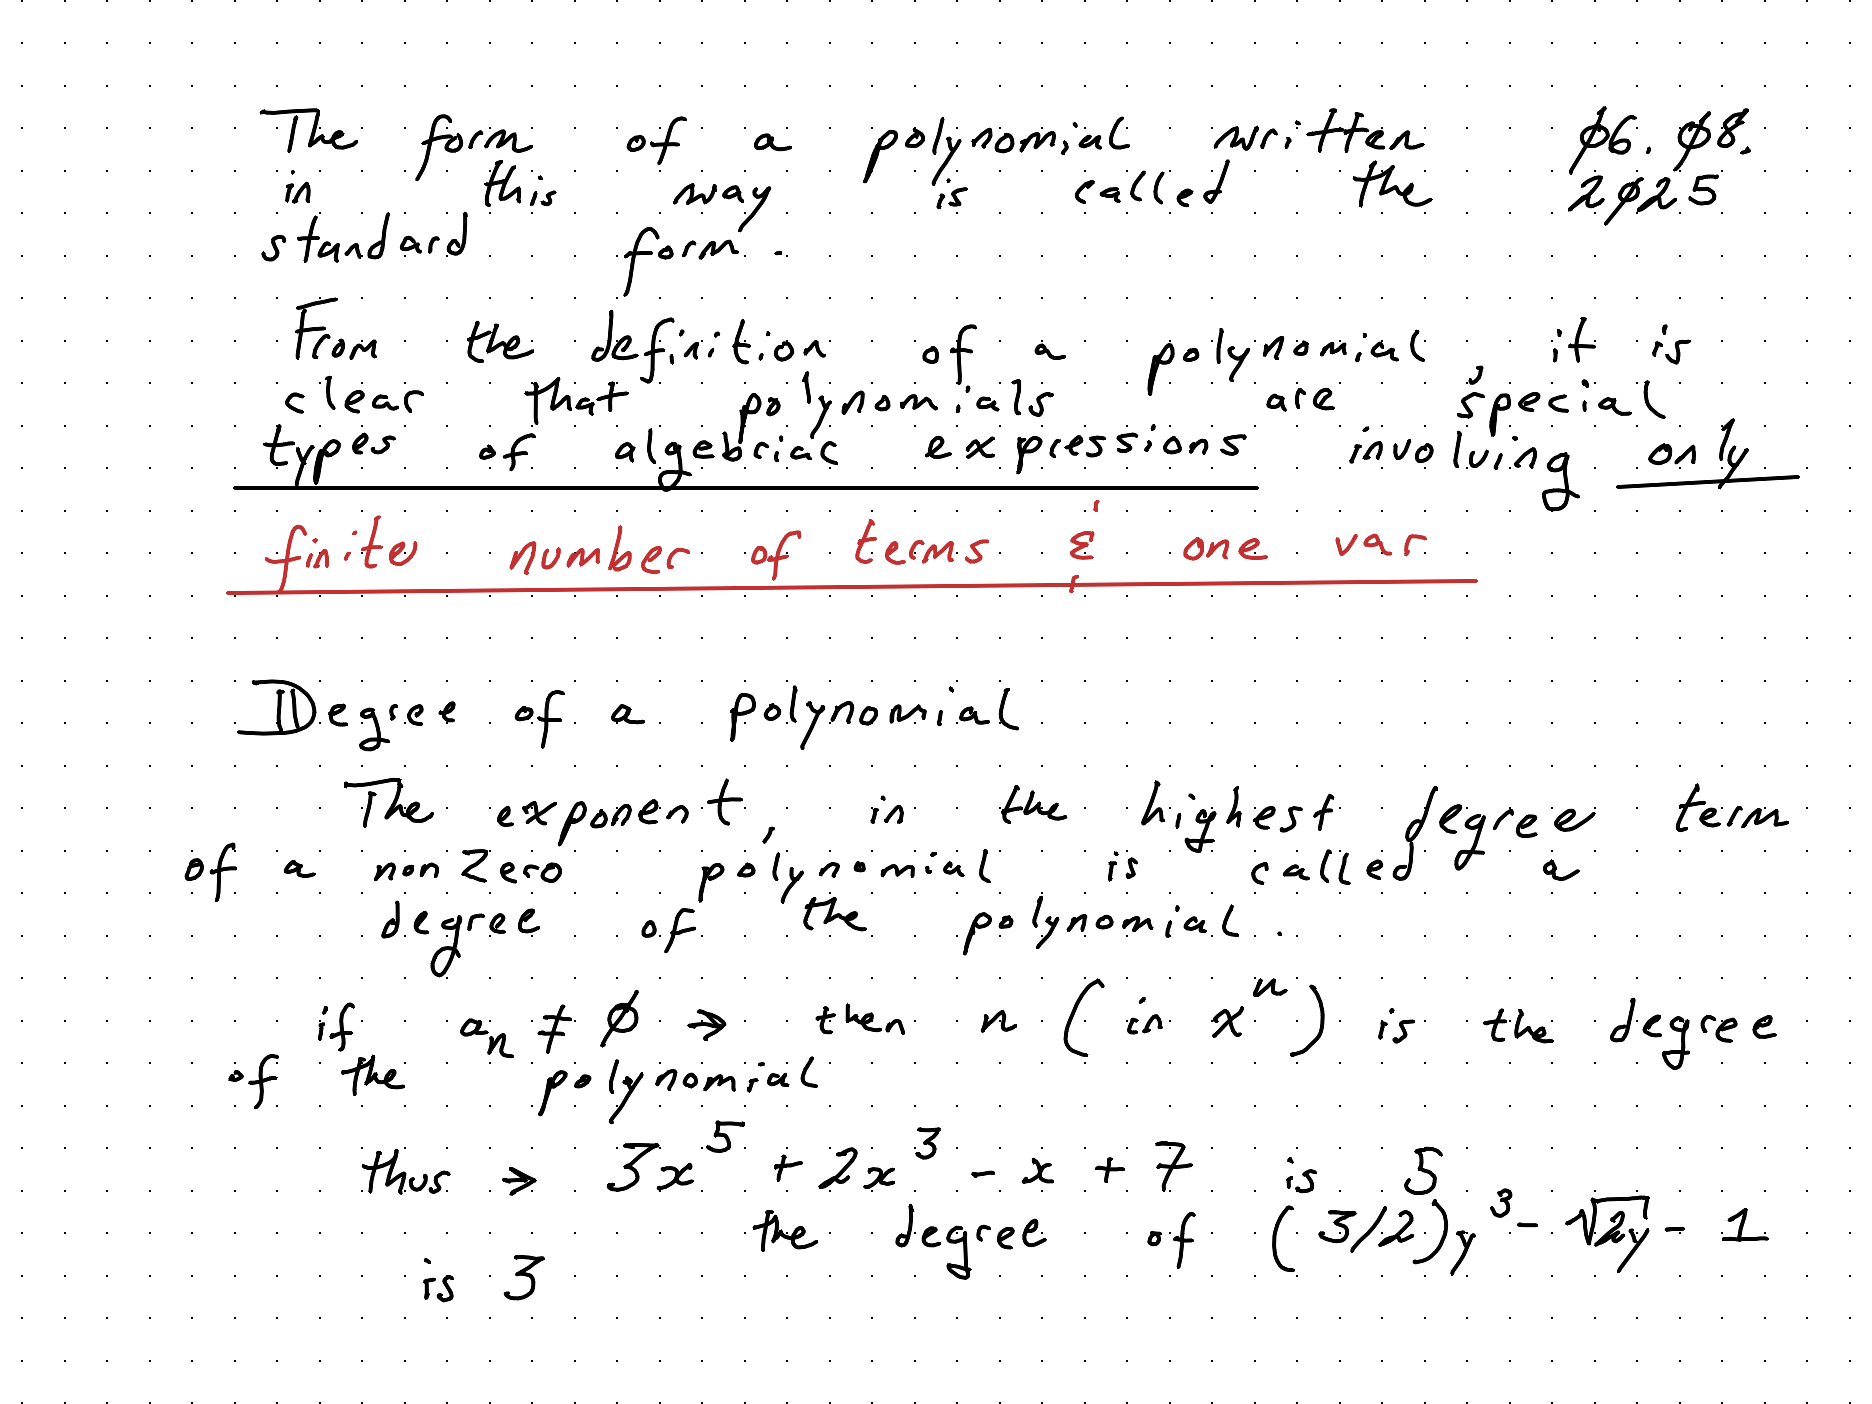 The form of a polynomial written ∅6. ∅8.
in this way is called the 2∅25
standard form.
From the definition of a polynomial, it is
clear that polynomials are special
types of algebriac expressions involving only
finite number of terms & one var
Degree of a polynomial
The exponent, in the highest degree term
of a nonZero polynomial is called a
degree of the polynomial.
if aₙ ≠ ∅ → then n (in xⁿ) is the degree
of the polynomial
thus → 3x⁵ + 2x³ - x + 7 is 5
the degree of (3/2)y³ - √2y - 1
is 3